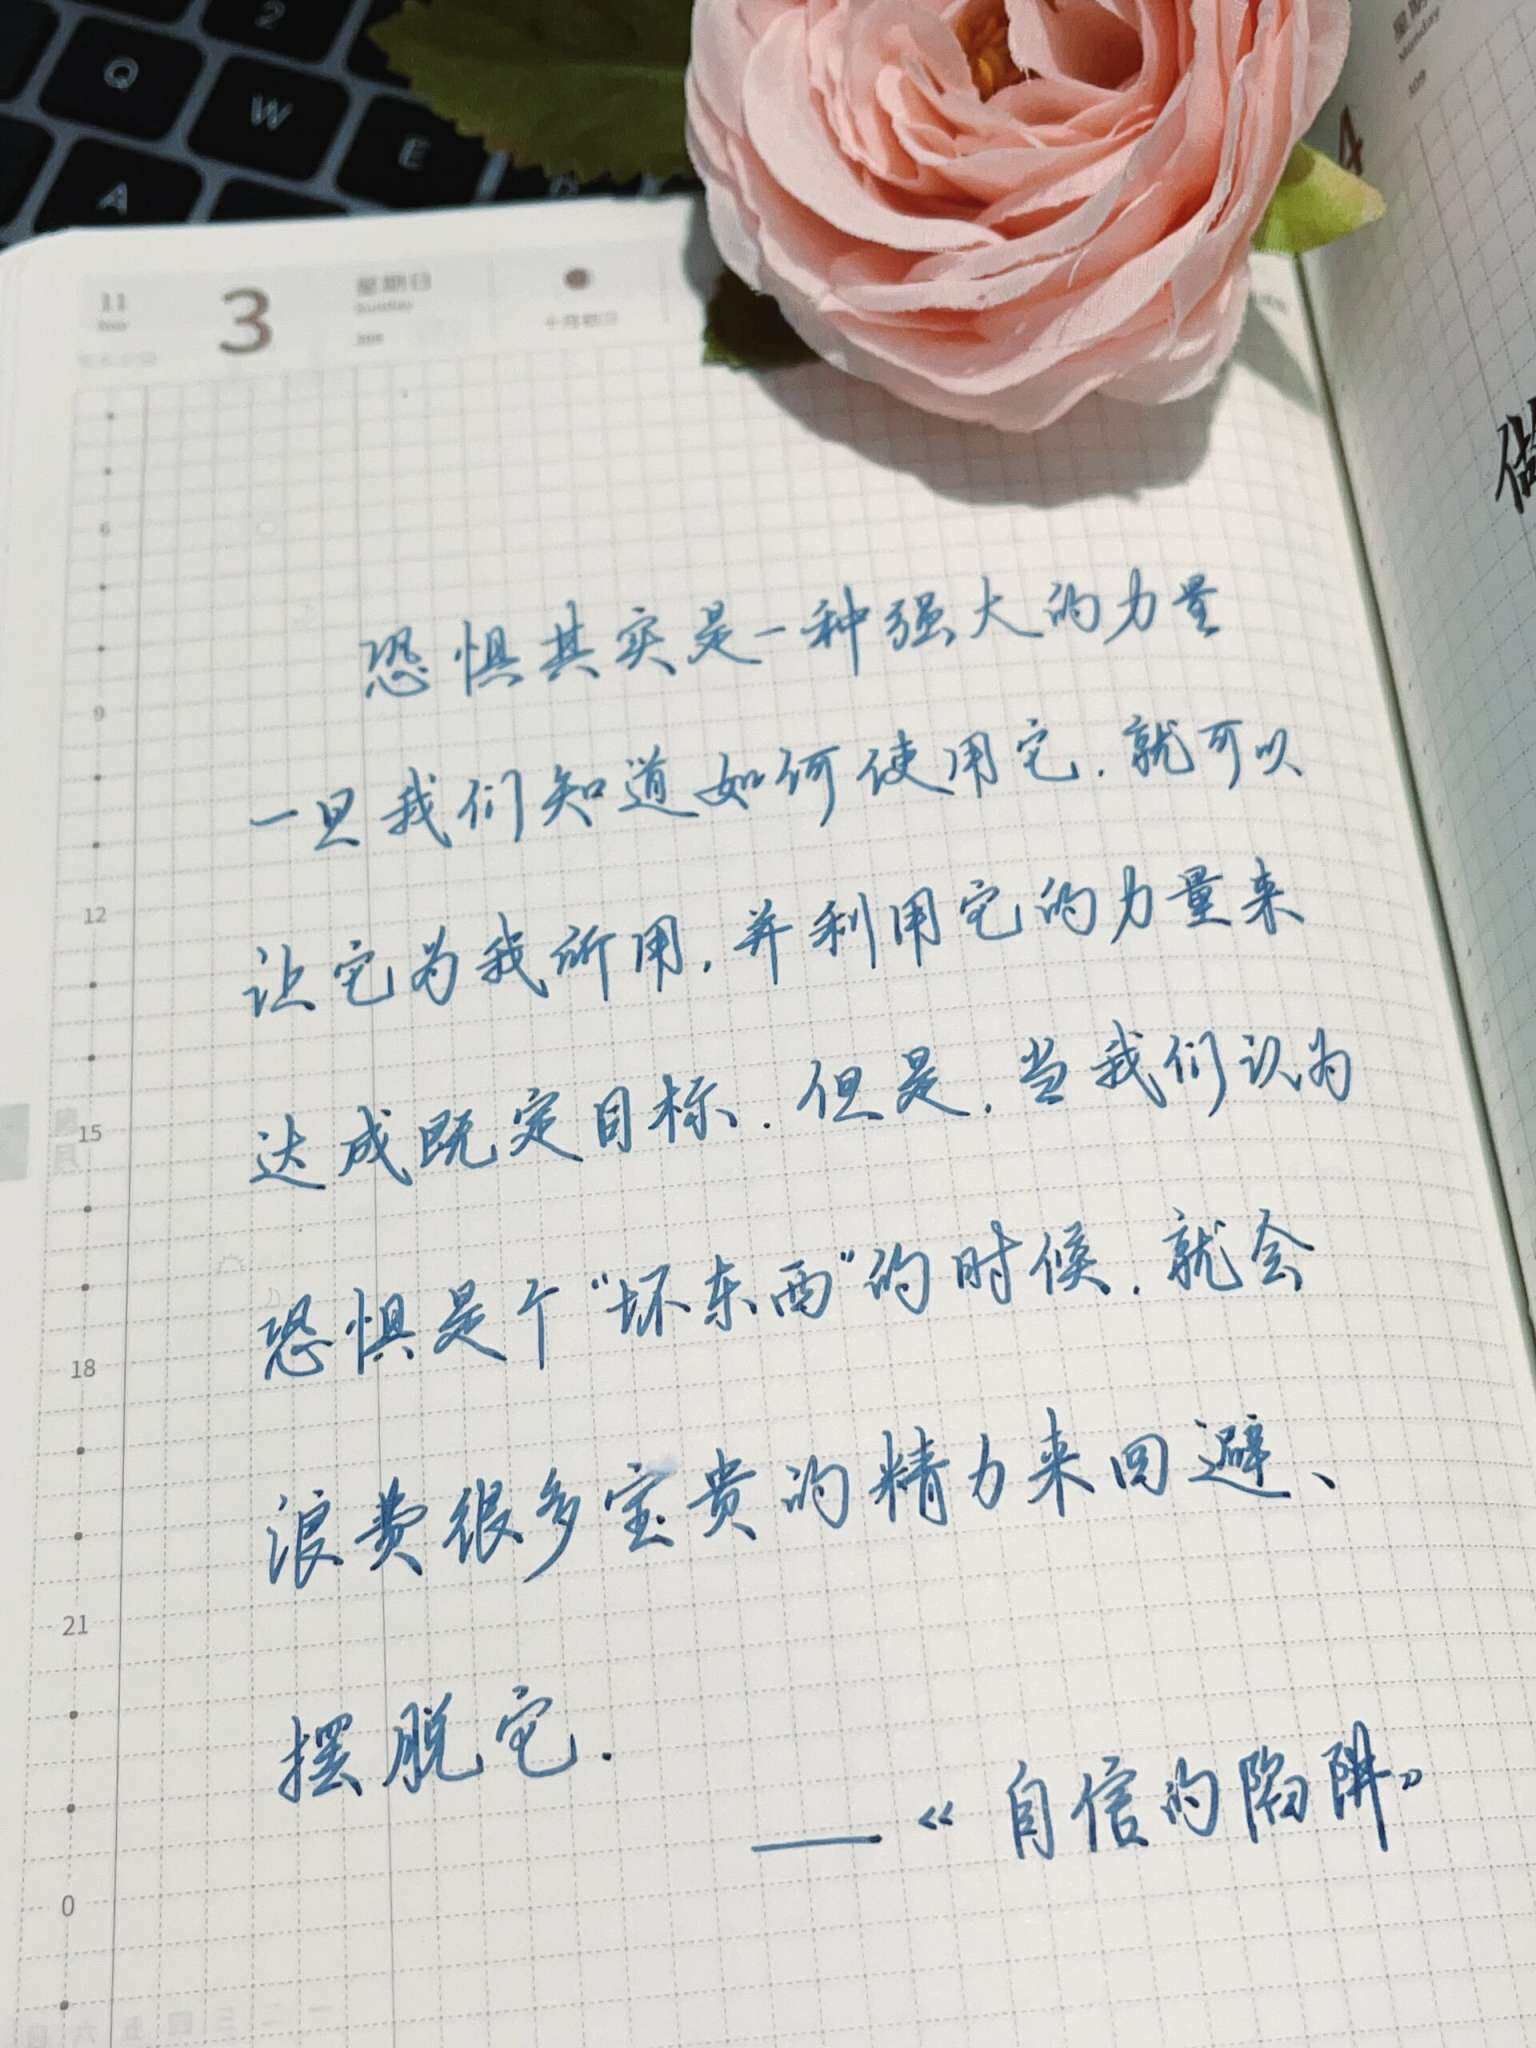 2
Q
W
E
A
11
3
星期日
Sunday
308
十月初三
星期一
Monday
309
4
6
9
12
15
18
21
0
恐惧其实是一种强大的力量
一旦我们知道如何使用它.就可以
让它为我所用,并利用它的力量来
达成既定目标.但是,当我们认为
恐惧是个“坏东西”的时候,就会
浪费很多宝贵的精力来回避、
摆脱它.
——《自信的陷阱》
一 二 三 四 五 六 日